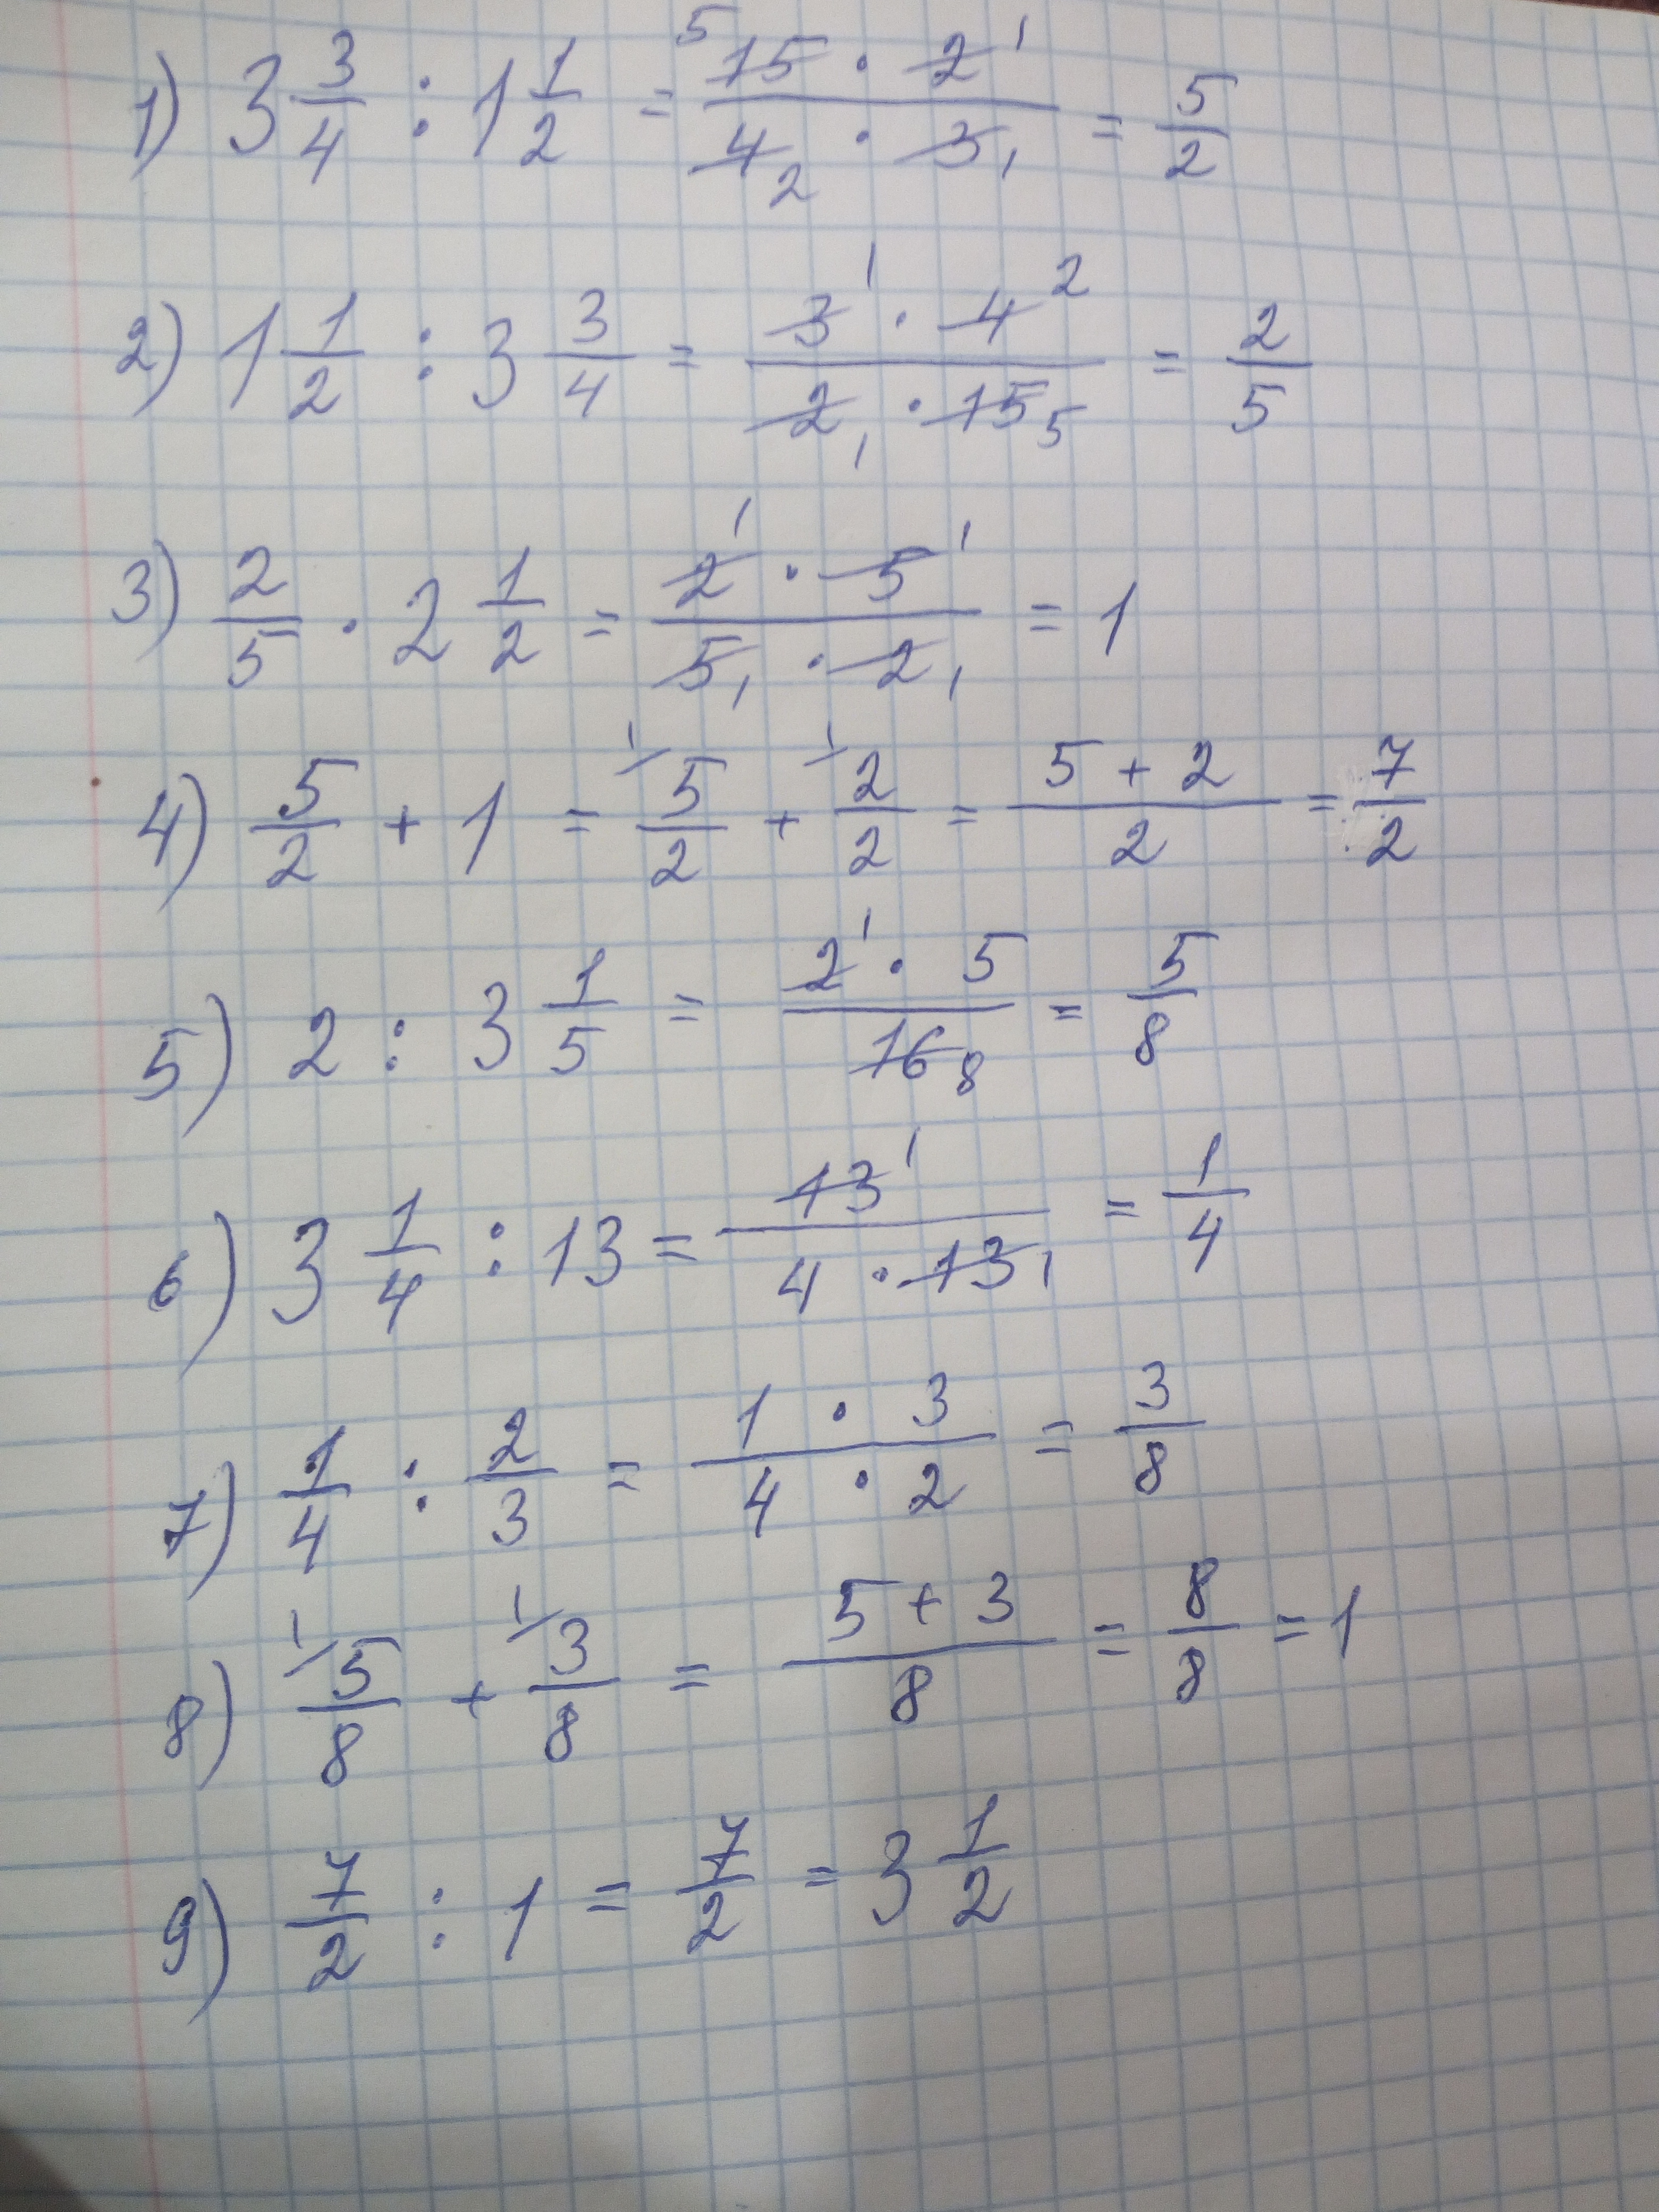 1) 3 3/4 : 1 1/2 = 15 5 · 2 1 / 4 2 · 3 1 = 5/2
2) 1 1/2 : 3 3/4 = 3 1 · 4 2 / 2 1 · 15 5 = 2/5
3) 2/5 · 2 1/2 = 2 1 · 5 1 / 5 1 · 2 1 = 1
4) 5/2 + 1 = 1/ 5/2 + 1/ 2/2 = 5 + 2 / 2 = 7/2
5) 2 : 3 1/5 = 2 1 · 5 / 16 8 = 5/8
6) 3 1/4 : 13 = 13 1 / 4 · 13 1 = 1/4
7) 1/4 : 2/3 = 1 · 3 / 4 · 2 = 3/8
8) 1/ 5/8 + 1/ 3/8 = 5 + 3 / 8 = 8/8 = 1
9) 7/2 : 1 = 7/2 = 3 1/2